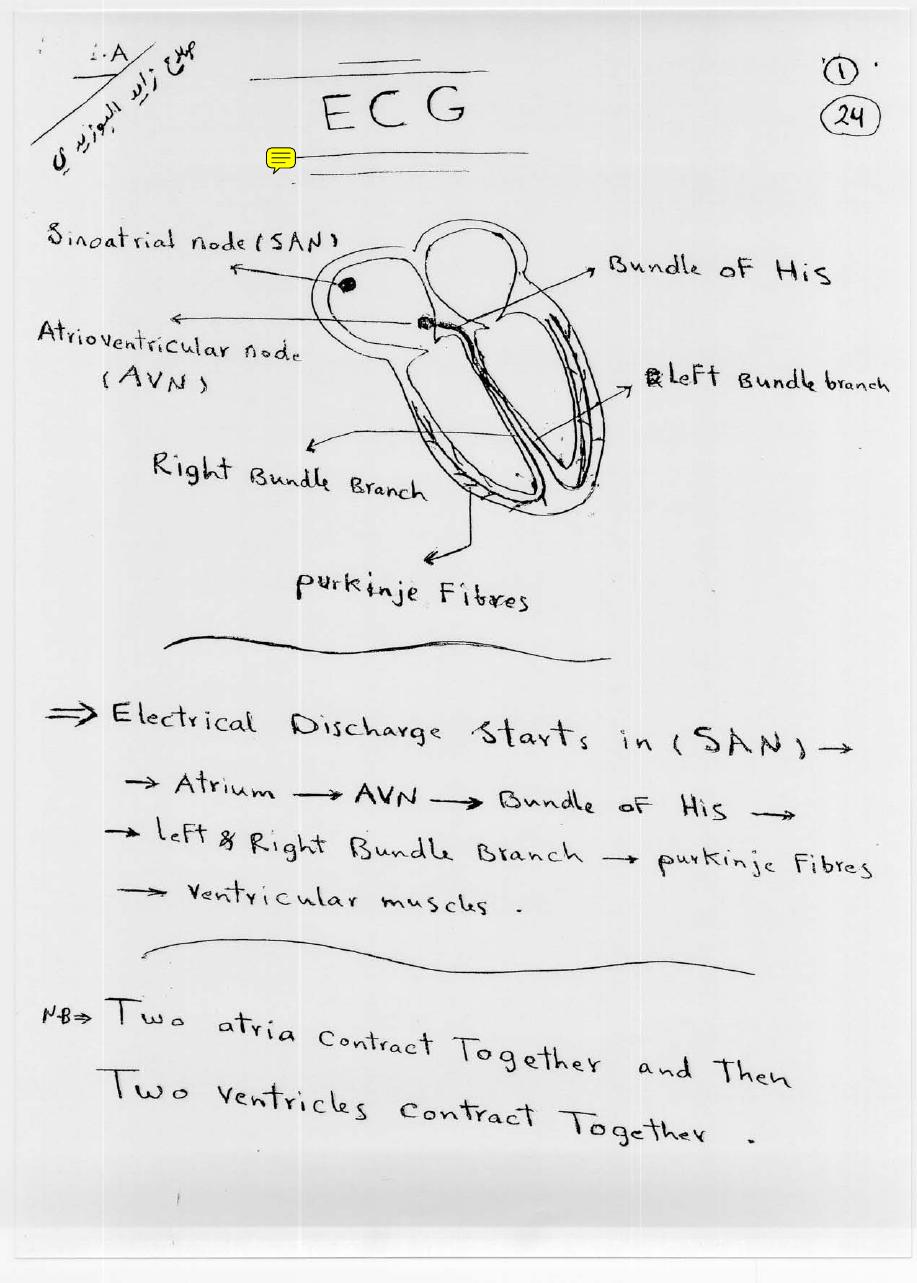 صلاح زايد البوزيدي
1
24
ECG
Sinoatrial node (SAN)
Bundle of His
Atrioventricular node
(AVN)
Left Bundle branch
Right Bundle Branch
purkinje Fibres
⇒ Electrical Discharge Starts in (SAN) →
→ Atrium → AVN → Bundle of His →
→ left & Right Bundle Branch → purkinje Fibres
→ ventricular muscles .
N.B ⇒ Two atria contract Together and Then
Two ventricles contract Together .